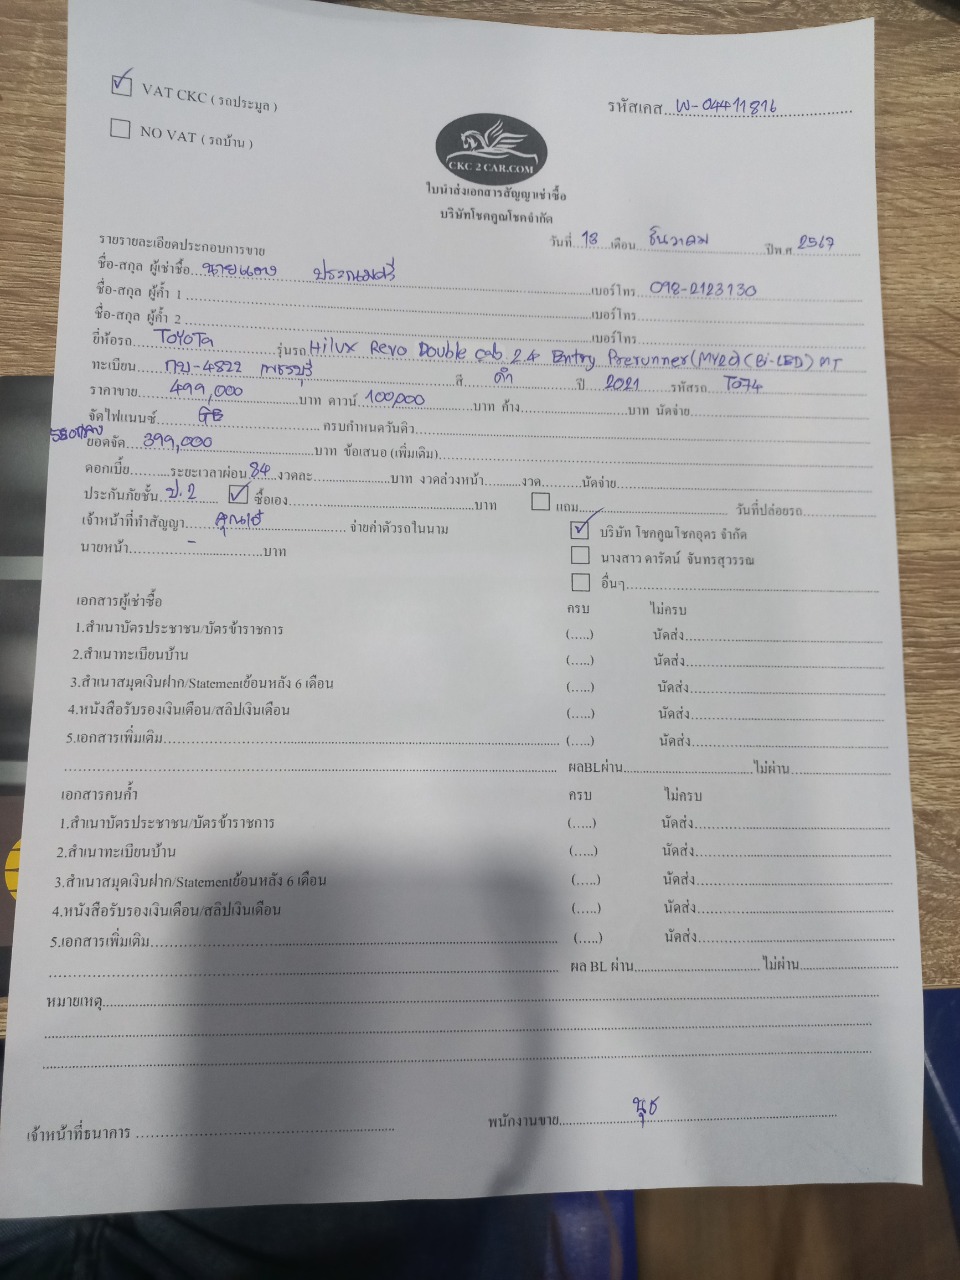 ☑ VAT CKC ( รถประมูล )
รหัสเคส...W-04411816
☐ NO VAT ( รถบ้าน )
CKC 2 CAR.COM
ใบนำส่งเอกสารสัญญาเช่าซื้อ
บริษัทโชคคูณโชคจำกัด
วันที่ 18 เดือน ธันวาคม ปีพ.ศ. 2567
รายรายละเอียดประกอบการขาย
ชื่อ-สกุล ผู้เช่าซื้อ นาย ประณมศรี เบอร์โทร 098-2123130
ชื่อ-สกุล ผู้ค้ำ 1 เบอร์โทร
ชื่อ-สกุล ผู้ค้ำ 2 เบอร์โทร
ยี่ห้อรถ TOYOTA รุ่นรถ Hilux Revo Double cab 2.4 Entry Prerunner (MY20) (Bi-LED) MT
ทะเบียน กบ-4822 เพชรบุรี สี ดำ ปี 2021 รหัสรถ T074
ราคาขาย 499,000 บาท ดาวน์ 100,000 บาท ค้าง บาท นัดจ่าย
จัดไฟแนนซ์ GB ครบกำหนดวันคิว
ยอดจัด 399,000 บาท ข้อเสนอ (เพิ่มเติม)
ดอกเบี้ย ระยะเวลาผ่อน 84 งวดละ บาท งวดล่วงหน้า งวด นัดจ่าย
ประกันภัยชั้น ป.2 ☑ ซื้อเอง บาท ☐ แถม วันที่ปล่อยรถ
เจ้าหน้าที่ทำสัญญา จ่ายค่าตัวรถในนาม ☑ บริษัท โชคคูณโชคอุดร จำกัด
นายหน้า - บาท ☐ นางสาว ดารัตน์ จันทรสุวรรณ
☐ อื่นๆ
เอกสารผู้เช่าซื้อ ครบ ไม่ครบ
1.สำเนาบัตรประชาชน/บัตรข้าราชการ (.....) นัดส่ง
2.สำเนาทะเบียนบ้าน (.....) นัดส่ง
3.สำเนาสมุดเงินฝาก/Statementย้อนหลัง 6 เดือน (.....) นัดส่ง
4.หนังสือรับรองเงินเดือน/สลิปเงินเดือน (.....) นัดส่ง
5.เอกสารเพิ่มเติม (.....) นัดส่ง
ผลBLผ่าน ไม่ผ่าน
เอกสารคนค้ำ ครบ ไม่ครบ
1.สำเนาบัตรประชาชน/บัตรข้าราชการ (.....) นัดส่ง
2.สำเนาทะเบียนบ้าน (.....) นัดส่ง
3.สำเนาสมุดเงินฝาก/Statementย้อนหลัง 6 เดือน (.....) นัดส่ง
4.หนังสือรับรองเงินเดือน/สลิปเงินเดือน (.....) นัดส่ง
5.เอกสารเพิ่มเติม (.....) นัดส่ง
ผล BL ผ่าน ไม่ผ่าน
หมายเหตุ
เจ้าหน้าที่ธนาคาร พนักงานขาย นุช